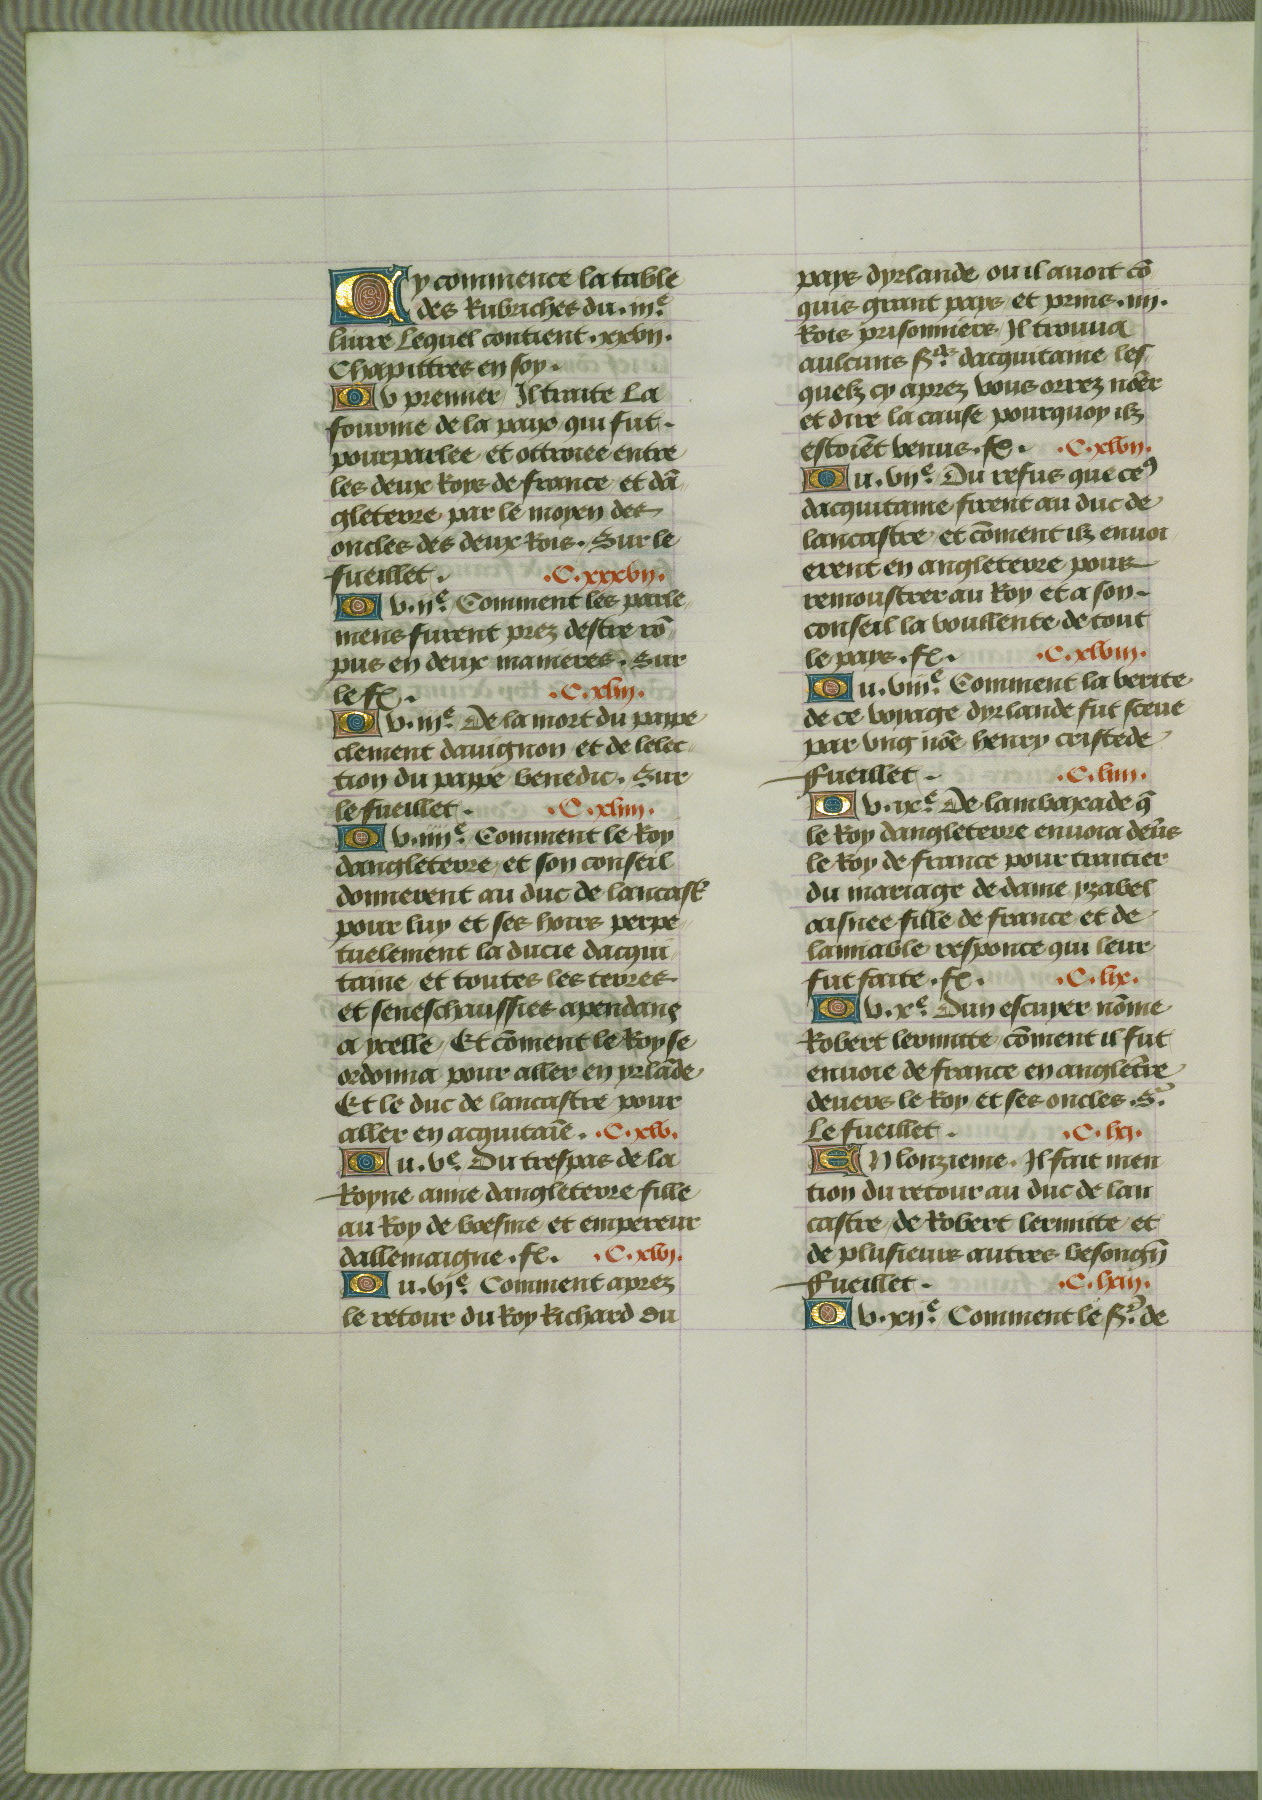 Cy commence la table
des Rubriches du .iii.e
liure Lequel contient .xxvii.
Chapittres en soy .
Ou premier Il traite La
fourme de la paix qui fut .
pourparlee et ottroiee entre
les deux Roys de france et dā
gleterre par le moyen des
oncles des deux Rois . Sur le
fueillet . .C.xxxvii.
Ou .ii.e Comment les parle
mens furent prez destre rō
pus en deux manieres . Sur
le fe . .C.xliii.
Ou .iii.e De la mort du pappe
clement dauignon et de lelec
tion du pappe benedic . Sur
le fueillet . .C.xliiii.
Ou .iiii.e Comment le Roy
dangleterre et son conseil
donnerent au duc de lancastr
pour luy et ses hoirs perpe
tuelement la ducie dacqui
taine et toutes les terres
et seneschaussies apendans
a ycelle Et cōment le Roy se
ordonna pour aller en yrlāde
Et le duc de lancastre pour
aller en acquitaīe . .C.xlv.
Ou .v.e Du trespas de la
Royne anne dangleterre fille
au Roy de boesme et empereur
dallemaigne . fe . .C.xlvi.
Ou .vi.e Comment aprez
le retour du Roy Richard du
pays dyrlande ou il auoit cō
quis grant pays et prins .iiii.
Rois prisonniers Il trouua
aulcuns Srs dacquitaine les
quelz cy aprez vous orrez nōer
et dire la cause pourquoy ilz
estoiēt venus . fe . .C.xlvii.
Ou .vii.e Du refus que ceꝰ
dacquitaine firent au duc de
lancastre et cōment ilz enuoi
erent en angleterre pour
remoustrer au Roy et a son
conseil la voullente de tout
le pays . fe . .C.xlviii.
Ou .viii.e Comment la verite
de ce voyage dyrlande fut sceue
par vng nōe henry cristede
fueillet . .C.liiii.
Ou .ix.e De lambaxade q̄
le Roy dangleterre enuoia deūs
le Roy de france pour traitier
du mariage de dame yzabel
aisnee fille de france et de
lamiable responce qui leur
fut faite . fe . .C.lix.
Ou .x.e Dun escuyer nōme
Robert lermitte cōment il fut
enuoie de france en angletr̄e
deuers le Roy et ses oncles . Sr
Le fueillet . .C.lxi.
En lonzieme . Il fait men
tion du retour au duc de lan
castre de Robert lermitte et
de plusieurs autres besongn̄
fueillet . .C.lxiii.
Ou .xii.e Comment le Sr. de